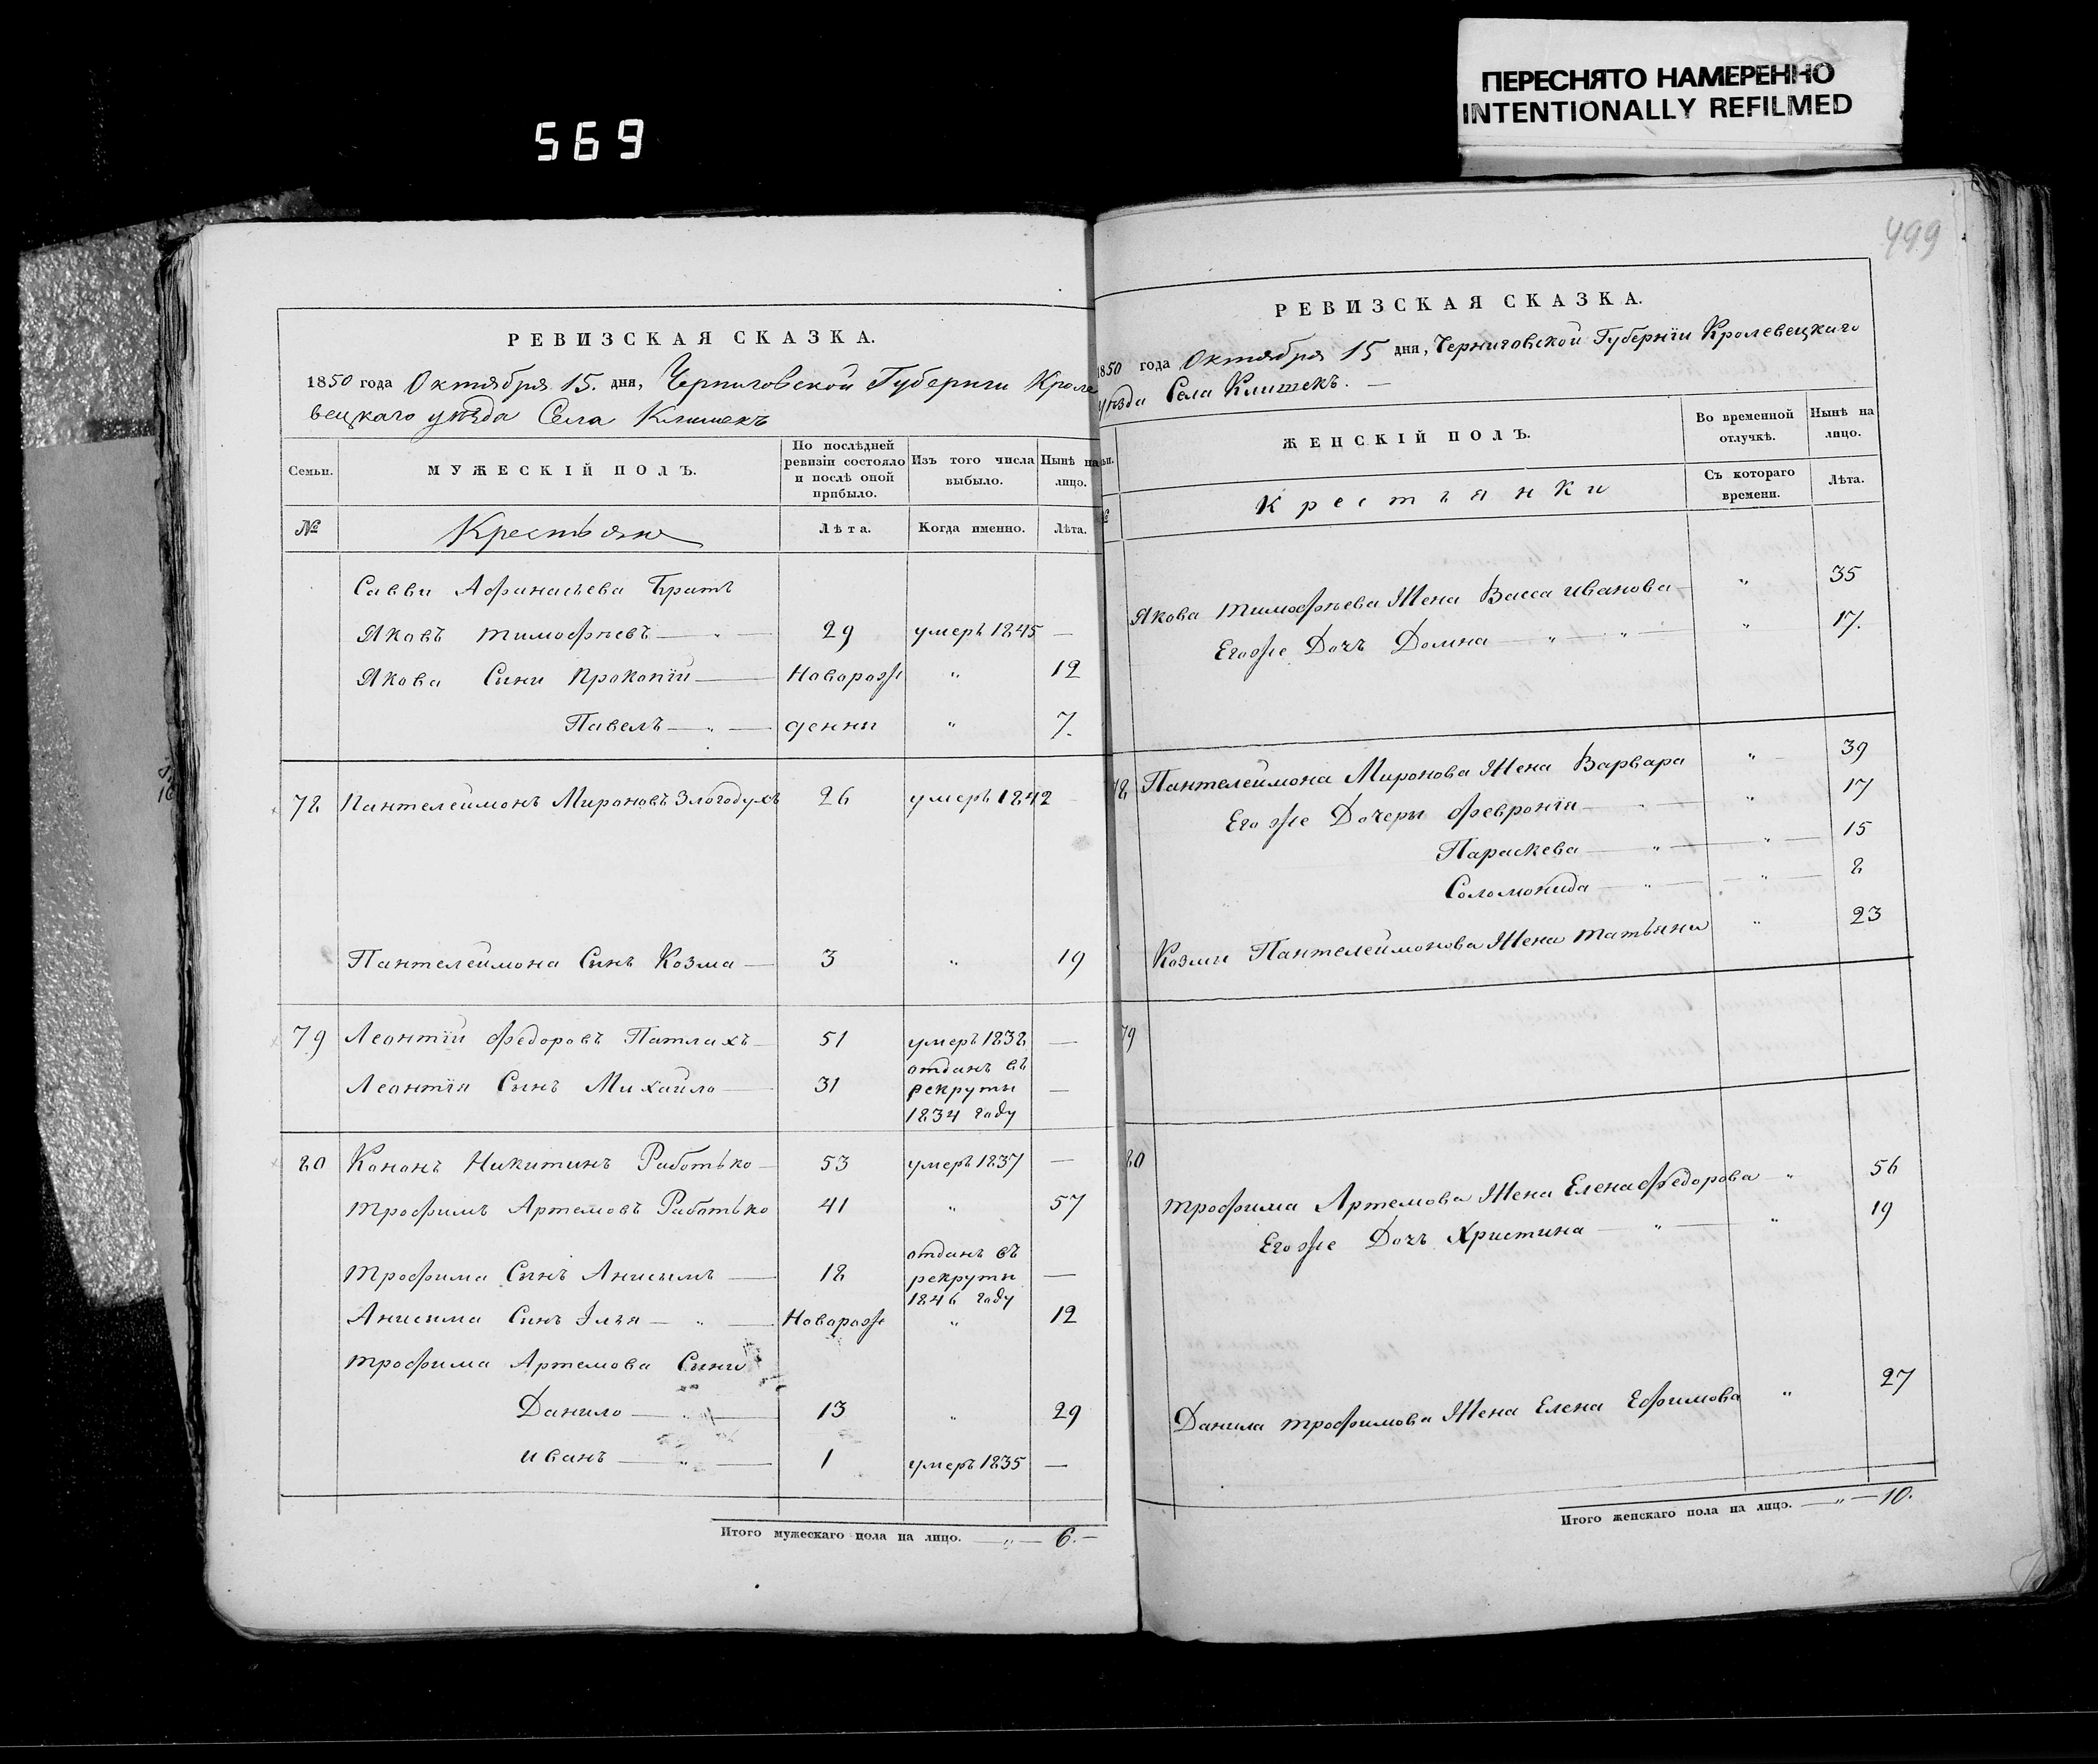 569
ПЕРЕСНЯТО НАМЕРЕННО
INTENTIONALLY REFILMED
499
РЕВИЗСКАЯ СКАЗКА.
1850 года Октября 15. дня, Черниговской Губернии Кроле
вецкаго уѣзда Села Клишекъ
Семьи. МУЖЕСКІЙ ПОЛЪ. По послѣдней ревизіи состояло и послѣ оной прибыло. Изъ того числа выбыло. Нынѣ на лицо.
№ Крестьяне Лѣта. Когда именно. Лѣта.
Савви Афанасьева Братъ
Яковъ Тимофѣевъ — „ — 29 умеръ 1845 —
Якова Сыни Прокопій — Новорож „ 12
Павелъ — „ — денни „ 7.
78 Пантелеймонъ Мироновъ Злогодухъ 26 умеръ 1842
Пантелеймона Сынъ Козма — 3 „ 19
79 Леонтій Федоровъ Патлахъ — 51 умеръ 1838 —
Леонтія Сынъ Михайло — 31 отданъ въ рекруты 1834 году —
80 Кононъ Никитинъ Работько — 53 умеръ 1837 —
Трофимъ Артемовъ Работько 41 „ 57
Трофима Сынъ Анисимъ — 18 отданъ въ рекруты 1846 году —
Анисима Сынъ Илья — „ — Новорож „ 12
Трофима Артемова Сыни
Данило — „ — 13 „ 29
Иванъ — „ — 1 умеръ 1835 —
Итого мужескаго пола на лицо. — „ — 6. —
РЕВИЗСКАЯ СКАЗКА.
1850 года Октября 15 дня, Черниговской Губерніи Кролевецкаго
уѣзда Села Клишекъ. —
ЖЕНСКІЙ ПОЛЪ. Во временной отлучкѣ. Нынѣ на лицо.
№ Крестьянки Съ котораго времени. Лѣта.
Якова Тимофѣева Жена Васса Иванова „ 35
Егоже Дочь Домна — „ — „ — „ 17.
78 Пантелеймона Миронова Жена Варвара „ 39
Егоже Дочери Февронія — „ 17
Параскева — „ — „ — 15
Соломонида — „ — „ — 8
Козми Пантелеймонова Жена Татьяна „ 23
79
80
Трофима Артемова Жена Елена Федорова „ 56
Егоже Дочь Христина — „ — „ 19
Данила Трофимова Жена Елена Ефимова „ 27
Итого женскаго пола на лицо. — „ — 10.